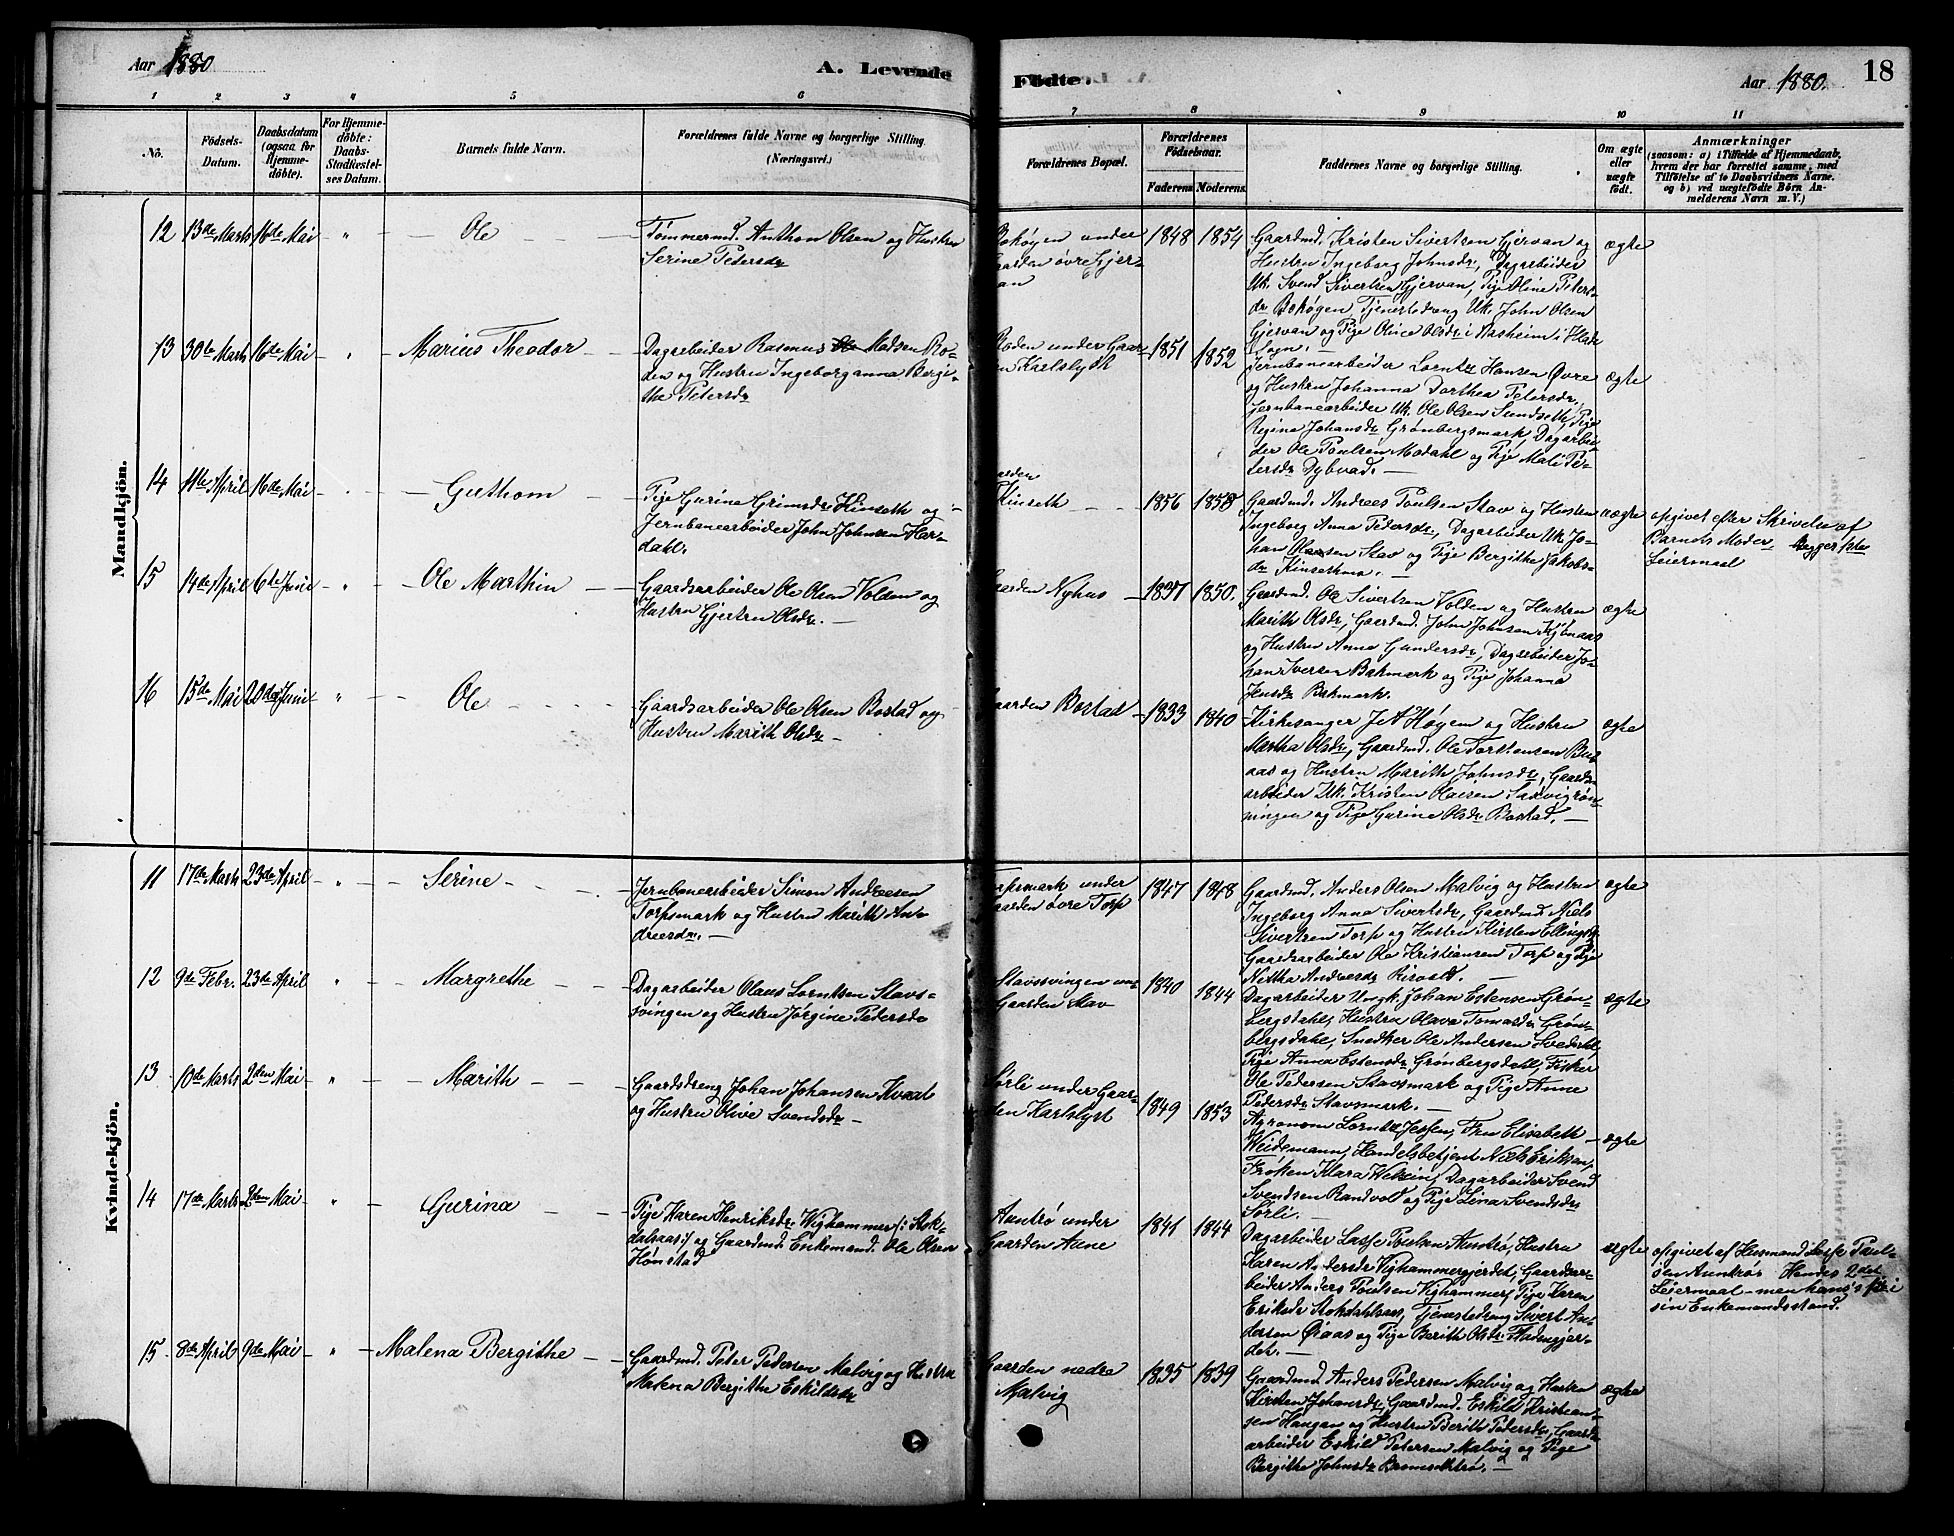 Aar 1880
A. Levende
Fødte.
Aar 1880.
18
1 2 3 4 5 6 7 8 9 10 11
No.
Födsels-
Datum.
Daabsdatum
(ogsaa for
Hjemme-
döbte).
For Hjemme-
döbte:
Daabs-
Stadfæstel-
ses Datum.
Barnets fulde Navn.
Forældrenes fulde Navne og borgerlige Stilling
(Næringsvei.)
Forældrenes Bopæl.
Forældrenes
Födselsaar.
Faderens. Moderens.
Faddernes Navne og borgerlige Stilling.
Om ægte
eller
uægte
födt.
Anmærkninger
(saasom: a) i Tilfælde af Hjemmedaab,
hvem der har forrettet samme, med
Tilföielse af to Daabsvidners Navne.
og b) ved uægtefödte Börn An-
melderens Navn m. V.)
Mandkjön.
12 13de Marts 16de Mai " Ole
Tømmermd. Anthon Olsen og Hustru
Serine Pedersdr
under
Gaarden øvre Gjer-
van
1848 1854
Gaardmd. Kristen Sivertsen Gjervan og
Hustru Ingeborg Johnsdr, Dagarbeider
Uk. Svend Sivertsen Gjervan, Pige Oline Peters-
dr Bohøgen, Tjenestedreng Uk. John Olsen
Gjervan og Pige Oline Olsdr i
Sogn.
ægte
13 30te Marts 16de Mai " Marius Theodor
Dagarbeider Rasmus Madsen Ro-
den og Hustru Ingeborganna Bergi-
the Petersdr
Roden under Gaar-
den Karlslydh
1851 1852
Jernbanearbeider Lorntz Hansen Øvre
og Hustru Johanna Dorthea Petersdr,
Jernbanearbeider Uk. Ole Olsen Sundseth, Pige
Regina Johansdr Grønbergsmark, Dagarbei-
der Ole Poulsen Modahl og Pige Mali Pe-
tersdr Dybvad.
ægte
14 April 16de Mai " Guthom
Pige Gurina Grimsdr Kinseth og
Jernbanearbeider John Johnsen Har-
dahl.
Gaarden
Kinseth
1856 1858
Gaardmd. Andreas Poulsen Stav og Hustru
Ingeborg Anna Pedersdr, Dagarbeider Uk. Jo-
han Olausen Stav og Pige Bergithe Jakobs-
dr
uægte
opgivet efter Skrivelse af
Barnets Moder. Begger 1ste
Leiermaal
15 14de April 6te Juni " Ole Marthin
Gaardsarbeider Ole Olsen Volden og
Hustru Gjertru Olsdr.
Gaarden Nyhus
1850.
Gaardmd. Ole Sivertsen Volden og Hustru
Marith Olsdr, Gaardmd. John Johnsen Kjønaas
og Hustru Anna Gundersdr, Dagarbeider Jo-
han Iversen Bakmark og Pige Johanna
Jensdr Bakmark.
ægte
16 15de Mai 20de Juni " Ole
Gaardsarbeider Ole Olsen Bostad og
Hustru Marith Olsdr
Gaarden Bostad
1833 1840
Kirkesanger J A Høyem og Hustru
Martha Olsdr, Gaardmd. Ole Torstensen Bus-
aas og Hustru Marith Johnsdr, Gaards-
arbeider Uk. Kristen Olausen Saxvigrøn-
ningen og Pige Gurine Olsdr Bostad.
ægte
Kvindekjön.
11 17de Marts 23de April " Serine
Jernbanearbeider Simon Andreasen
Torpsmark og Hustru Marith An-
dreasdr.
Torpsmark under
Gaarden øvre Torp
1847 1848
Gaardmd. Anders Olsen Malvig og Hustru
Ingeborg Anna Sivertsdr, Gaardmd. Niels
Sivertsen Torp og Hustru Kirsten Ellingsdr
Gaardsarbeider Ole Kristiansen Torp og Pige
Andreasdr
ægte
12 9de Febr. 23de April " Margrethe
Dagarbeider Olaus Lorntsen Stavs-
svingen og Hustru Jørgine Pedersdr
Stavssvingen un-
Gaarden Stav
1840 1844
Dagarbeider Ungk. Johan Estensen Grøn-
bergsdahl, Hustru Olava Tomasdr Grøn-
bergsdahl, Snedker Ole Andersen Svedahl,
Pige Anna Estensdr Grønbergsdahl, Fisker
Ole Pedersen Stavsmark og Pige Anne
Pedersdr Stavsmark.
ægte
13 10de Marts 2den Mai " Marith
Gaardsdreng Johan Johansen Kvaal
og Hustru Olive Svendsdr
Sørli under Gaar-
den Karlslyst
1849 1853
Agronom Lorntz Jessen, Fru Elisabeth
Weidemann, Handelsbetjent Niels Eriksen,
Frøken Klara Dagarbeider Svend
Svendsen Randvold og Pige Lina Svendsdr
Sørli.
ægte
14 17de Marts 2den Mai " Gurina
Pige Karen Henriksdr Wighammer /: i Stok-
dalsaas :/ og Gaardmd. Enkemand. Ole Olsen
Hønstad
Auntrø under
Gaarden Aune
1841 1844
Dagarbeider Lasse Poulsen Auntrø, Hustru
Karen Andersdr Vighammergjerdet, Gaardsar-
beider Anders Poulsen Vighammer, Pige Karen
Eriksdr Stokdahlsaas, Tjenestedreng Sivert An-
dersen Øiaas og Pige Berith Olsdr
det.
uægte
opgivet af Husmand Lasse Paul-
sen Auntrø. Hendes 2det
Leiermaal – men hans 1ste i
sin Enkemandsstand.
15 8de April 9de Mai " Malena Bergithe
Gaardmd. Peter Pedersen Malvig og Hustru
Malena Bergitha Eskildsdr
Gaarden nedre
Malvig
1835 1839
Gaardmd. Anders Pedersen Malvig og Hustru
Kirsten Johansdr, Gaardmd. Eskild Kristian-
sen Haugan og Hustru Berith Pedersdr, Gaards-
arbeider Eskild Petersen Malvig og Pige
Bergitha Johnsdr
ægte